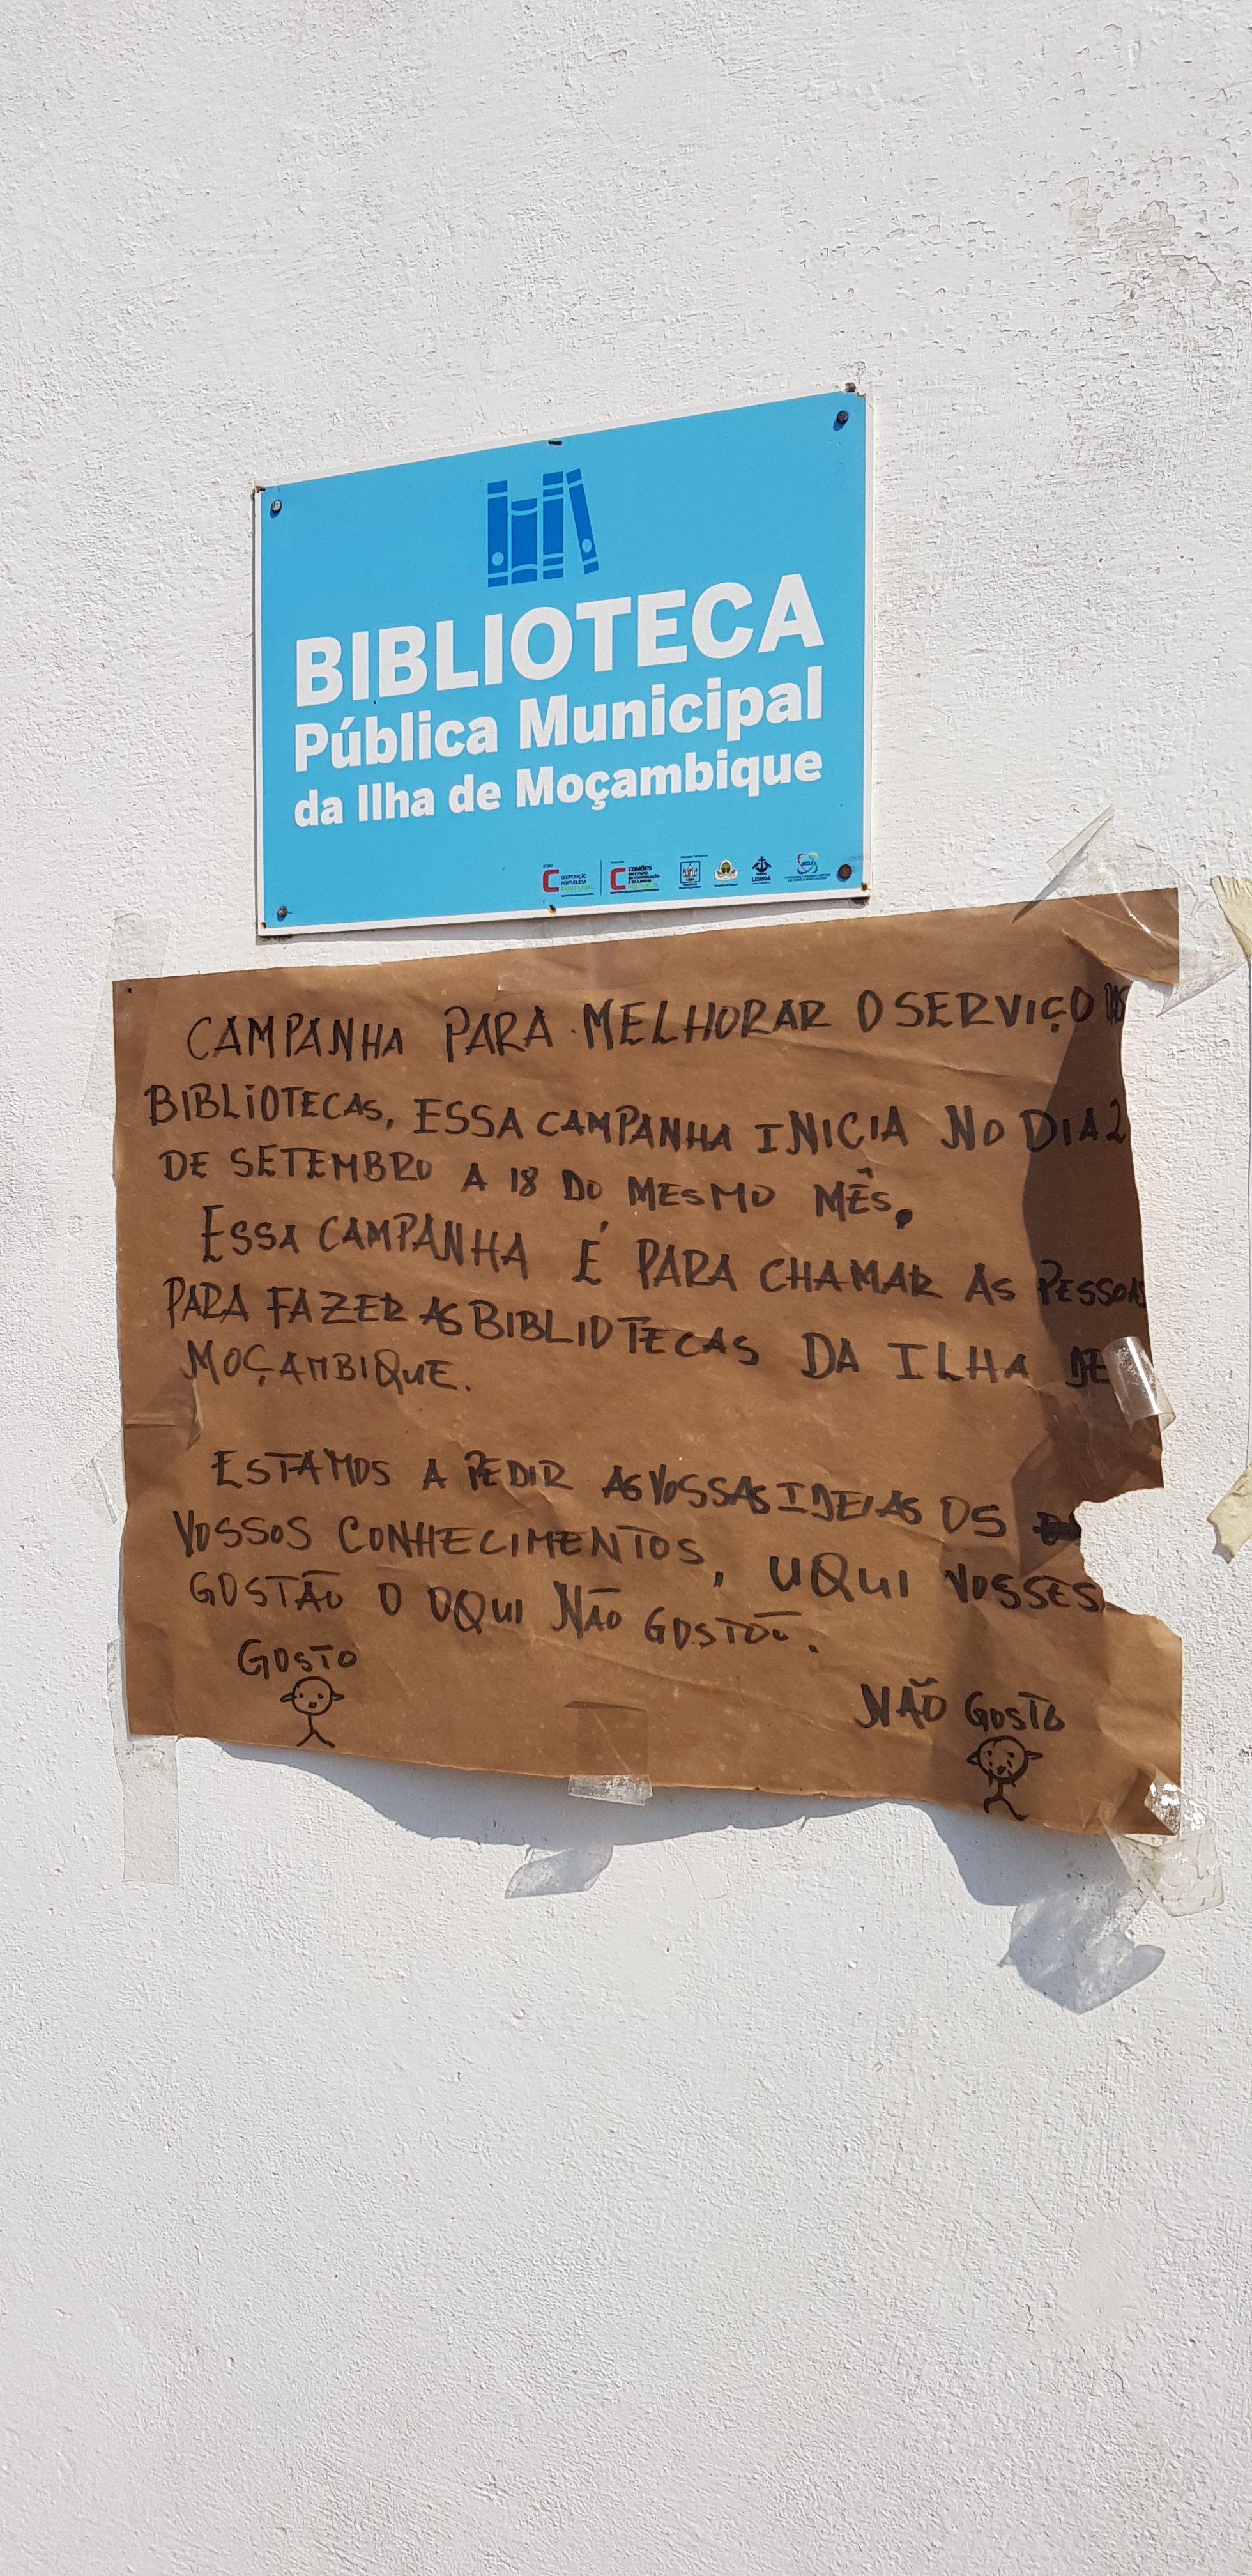 BIBLIOTECA
Pública Municipal
da Ilha de Moçambique
COOPERAÇÃO
PORTUGUESA
PORTUGAL
CAMÕES
INSTITUTO
DA COOPERAÇÃO
E DA LÍNGUA
PORTUGAL
LISBOA
CAMPANHA PARA MELHORAR O SERVIÇO DAS
BIBLIOTECAS, ESSA CAMPANHA INICIA NO DIA 2
DE SETEMBRO A 18 DO MESMO MÊS.
ESSA CAMPANHA É PARA CHAMAR AS PESSOAS
PARA FAZER AS BIBLIOTECAS DA ILHA DE
MOÇAMBIQUE.
ESTAMOS A PEDIR AS VOSSAS IDEIAS OS
VOSSOS CONHECIMENTOS, UQUI VOSSES
GOSTÃO O OQUI NÃO GOSTOU.
GOSTO
NÃO GOSTO